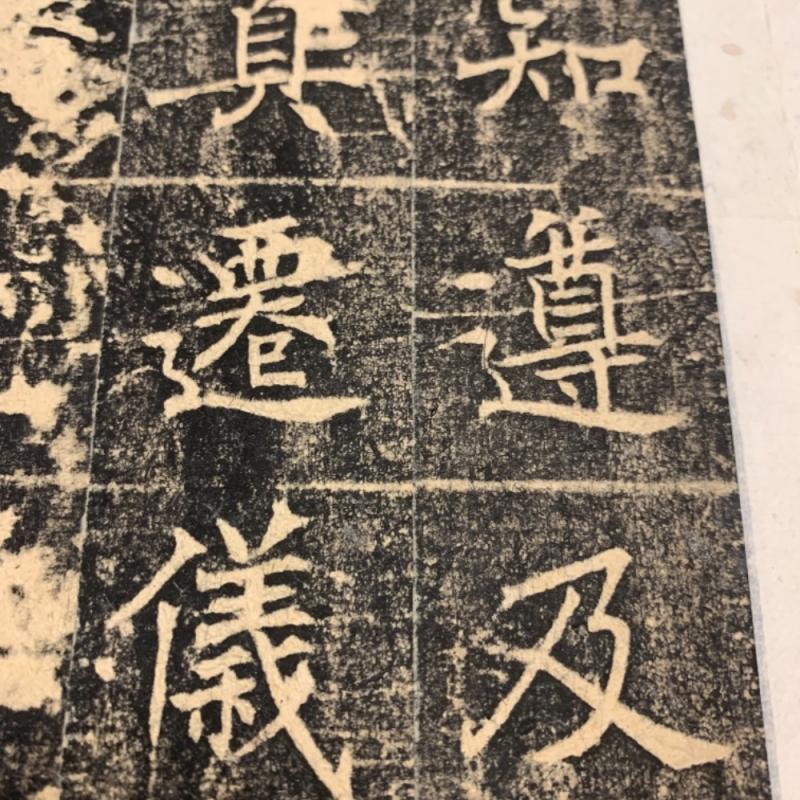 知遵及
真遷儀